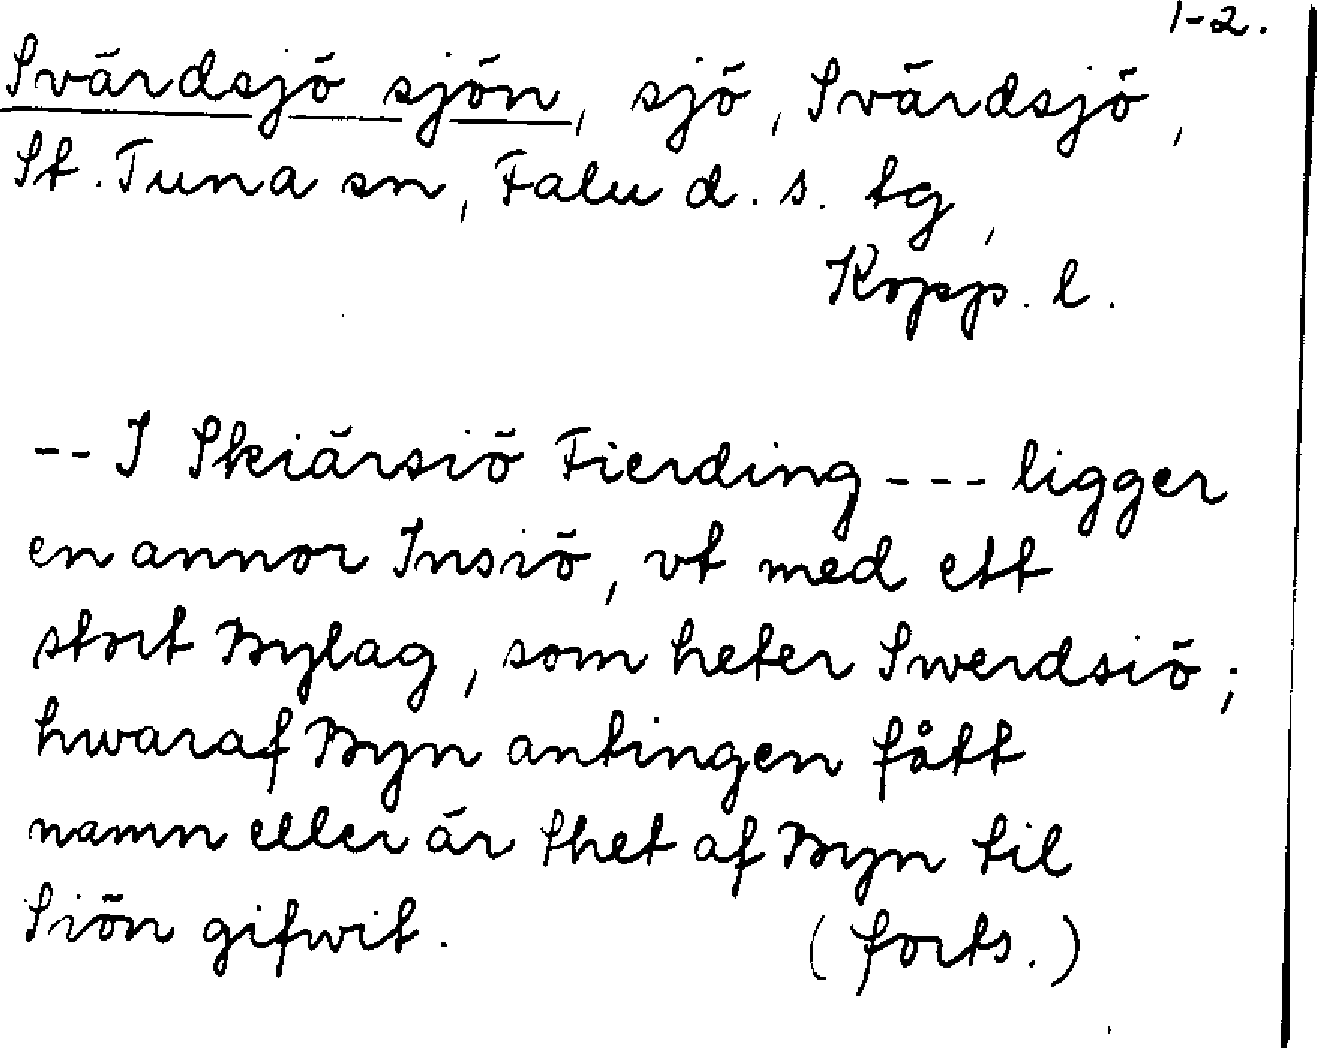 1-2.
Svärdsjö sjön, sjö, Svärdsjö,
St. Tuna sn, Falu d. s. tg,
Kopp. l.
-- I Skiärsiö Fierding --- ligger
en annor Insiö, vt med ett
stort Bylag, som heter Swerdsiö;
hwaraf Byn antingen fått
namn eller är thet af Byn til
Siön gifwit. (forts.)